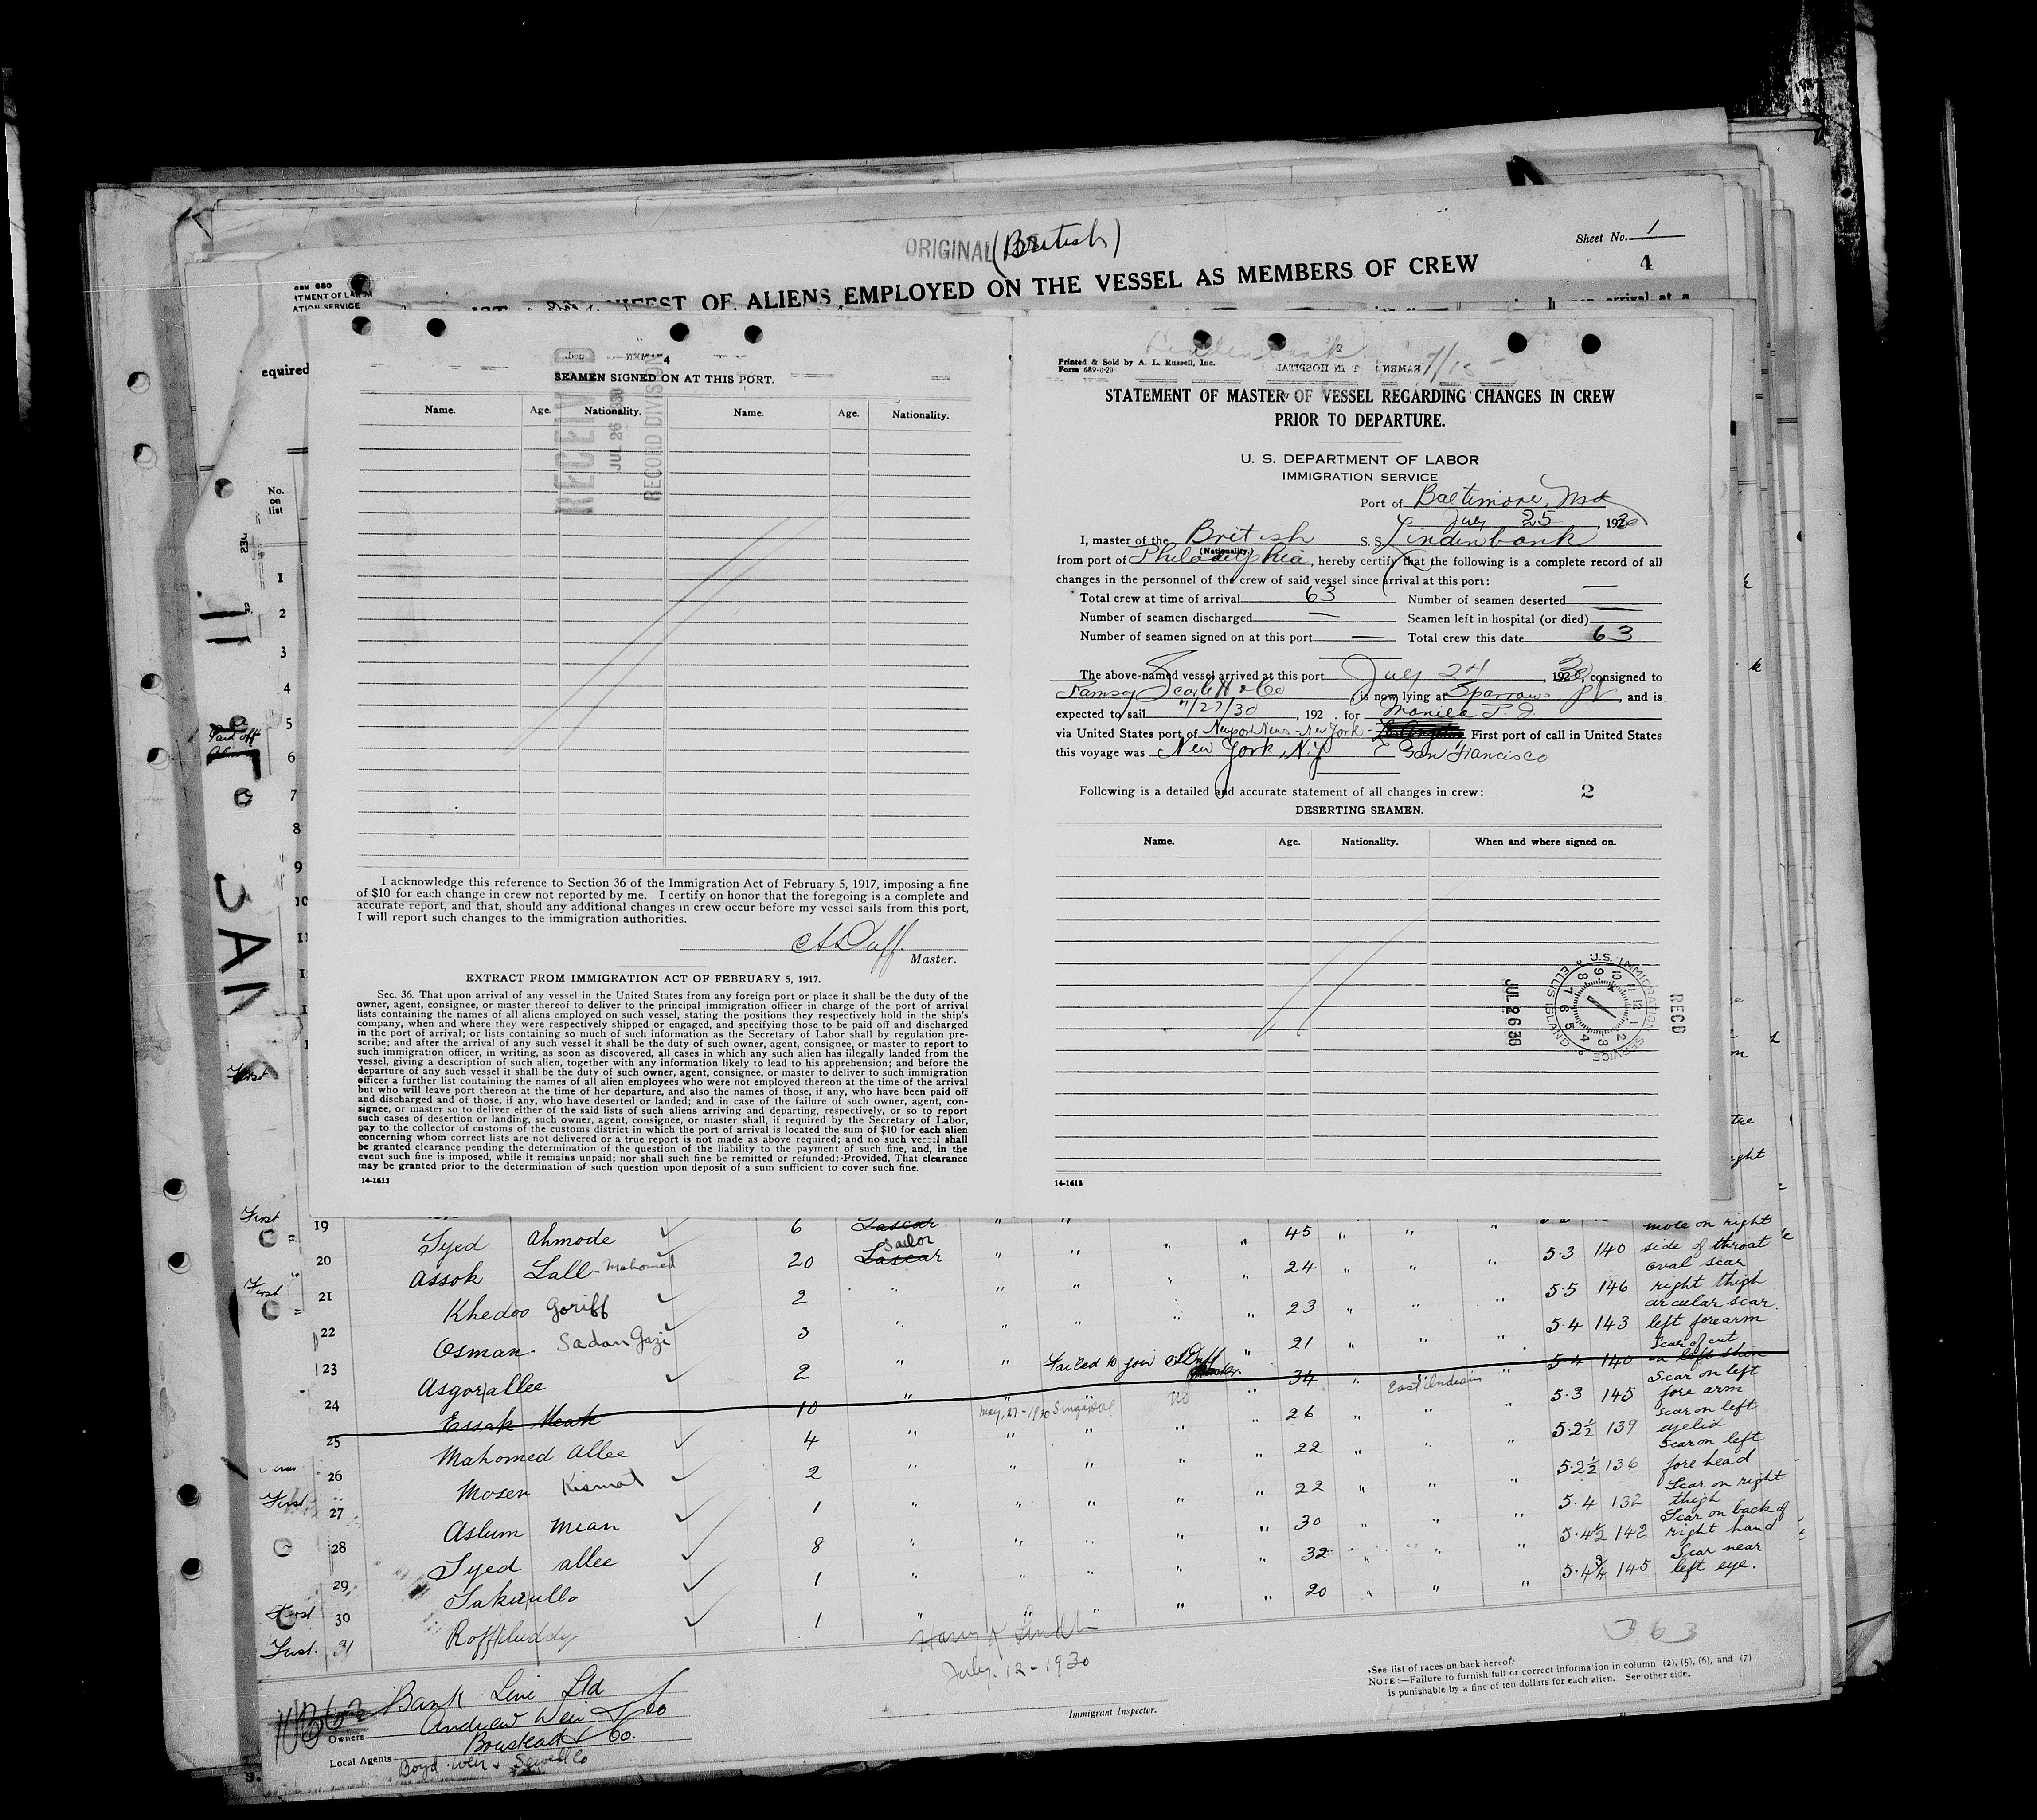 ORIGINAL (British)
Sheet No. 1
4
OF ALIENS EMPLOYED ON THE VESSEL AS MEMBERS OF CREW
required
No. on list
SEAMEN SIGNED ON AT THIS PORT.
Name. Age. Nationality. Name. Age. Nationality.
RECEIVED
JUL 26 1930
RECORD DIVISION
I acknowledge this reference to Section 36 of the Immigration Act of February 5, 1917, imposing a fine
of $10 for each change in crew not reported by me. I certify on honor that the foregoing is a complete and
accurate report, and that, should any additional changes in crew occur before my vessel sails from this port,
I will report such changes to the immigration authorities.
Duff
Master.
EXTRACT FROM IMMIGRATION ACT OF FEBRUARY 5, 1917.
Sec. 36. That upon arrival of any vessel in the United States from any foreign port or place it shall be the duty of the
owner, agent, consignee, or master thereof to deliver to the principal immigration officer in charge of the port of arrival
lists containing the names of all aliens employed on such vessel, stating the positions they respectively hold in the ship's
company, when and where they were respectively shipped or engaged, and specifying those to be paid off and discharged
in the port of arrival; or lists containing so much of such information as the Secretary of Labor shall by regulation pre-
scribe; and after the arrival of any such vessel it shall be the duty of such owner, agent, consignee, or master to report to
such immigration officer, in writing, as soon as discovered, all cases in which any such alien has illegally landed from the
vessel, giving a description of such alien, together with any information likely to lead to his apprehension; and before the
departure of any such vessel it shall be the duty of such owner, agent, consignee, or master to deliver to such immigration
officer a further list containing the names of all alien employees who were not employed thereon at the time of the arrival
but who will leave port thereon at the time of her departure, and also the names of those, if any, who have been paid off
and discharged and of those, if any, who have deserted or landed; and in case of the failure of such owner, agent, con-
signee, or master so to deliver either of the said lists of such aliens arriving and departing, respectively, or so to report
such cases of desertion or landing, such owner, agent, consignee, or master shall, if required by the Secretary of Labor,
pay to the collector of customs of the customs district in which the port of arrival is located the sum of $10 for each alien
concerning whom correct lists are not delivered or a true report is not made as above required; and no such vessel shall
be granted clearance pending the determination of the question of the liability to the payment of such fine, and, in the
event such fine is imposed, while it remains unpaid; nor shall such fine be remitted or refunded: Provided, That clearance
may be granted prior to the determination of such question upon deposit of a sum sufficient to cover such fine.
14-1613
Printed & Sold by A. L. Russell, Inc.
Form 689-6-29
STATEMENT OF MASTER OF VESSEL REGARDING CHANGES IN CREW
PRIOR TO DEPARTURE.
U. S. DEPARTMENT OF LABOR
IMMIGRATION SERVICE
Port of Baltimore, Md
July 25, 1930
I, master of the British S. S. Lindenbank
(Nationality.)
from port of Philadelphia, hereby certify that the following is a complete record of all
changes in the personnel of the crew of said vessel since arrival at this port:
Total crew at time of arrival 63 Number of seamen deserted —
Number of seamen discharged — Seamen left in hospital (or died) —
Number of seamen signed on at this port — Total crew this date 63
The above-named vessel arrived at this port July 24, 1930, consigned to
Ramsey Scarlett & Co is now lying at Sparrows Pt, and is
expected to sail 7/27/30, 192 . for Manila P. I.
via United States port of Newport News - New York - Los Angeles First port of call in United States
this voyage was New York, N.Y. San Francisco
Following is a detailed and accurate statement of all changes in crew: 2
DESERTING SEAMEN.
Name. Age. Nationality. When and where signed on.
U.S. IMMIGRATION SERVICE ELLIS ISLAND
JUL 26 30
RECD
14-1613
19 Syed Ahmode 6 Lascar " " " 45 " " " mole on right side of throat
20 Assok Lall - Mahomed 20 Lascar Sailor " " " " 24 " " " 5·3 140 oval scar right thigh
21 Khedoo Goriff 2 " " " " " 23 " " " 5·5 146 circular scar left forearm
22 Osman Sadan Gazi 3 " " " " " 21 " " " 5·4 143 Scar of cut on left shin
23 Asgorallee 2 " " Failed to join Duff Master 34 " East Indian 5·4 140 Scar on left fore arm
24 Essak Meah 10 " May, 27-1930 Singapore No " 26 " " 5·3 145 Scar on left eyelid
25 Mahomed Allee 4 " " " " " 22 " " " 5·2½ 139 Scar on left fore head
26 Mosen Kismat 2 " " " " " 22 " " " 5·2½ 136 Scar on right thigh
27 Aslum Mian 1 " " " " " 30 " " " 5·4 132 Scar on back of right hand
28 Syed Allee 8 " " " " " 32 " " " 5·4½ 142 Scar near left eye.
29 1 " " " " " 20 " " " 5·4¾ 145
30 1
First 31
Harry
July. 12-1930
Immigrant Inspector.
363
*See list of races on back hereof.
NOTE:—Failure to furnish full or correct information in column (2), (5), (6), and (7)
is punishable by a fine of ten dollars for each alien. See other side.
Bank Line Ltd
Andrew Weir & Co
Owners
Boustead & Co.
Local Agents
Boyd Weir & Sewell Co